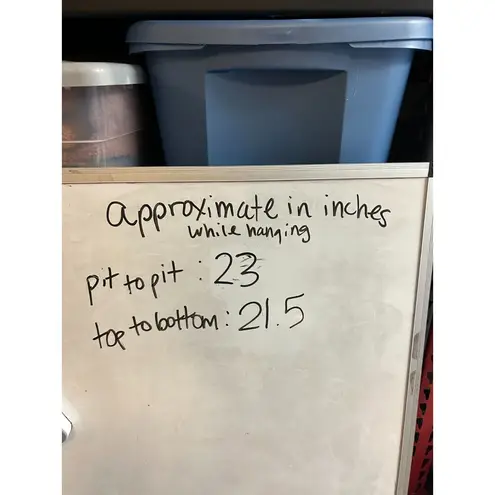 approximate in inches
while hanging
pit to pit : 23
top to bottom : 21.5